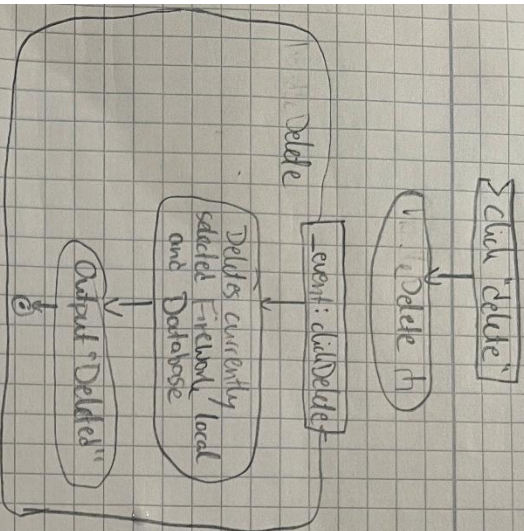 click "delete"
Delete
_event: clickDelete
Delete
Deletes currently
selected Firework local
and Database
Output "Deleted"